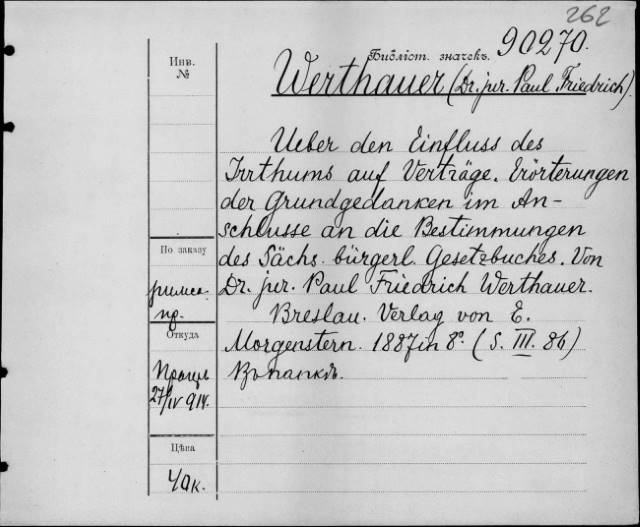 262
Библіот. значекъ. 90270.
Инв.
№
Werthauer (Dr. jur. Paul Friedrich).
Ueber den Einfluss des
Irrthums auf Verträge. Erörterungen
der Grundgedanken im An-
schlusse an die Bestimmungen
des Sächs. bürgerl. Gesetzbuches. Von
Dr. jur. Paul Friedrich Werthauer.
Breslau. Verlag von E.
Morgenstern. 1887 in 8º. (S. III. 86)
По заказу
римск.
пр.
Откуда
27/IV 914.
Цѣна
40к.